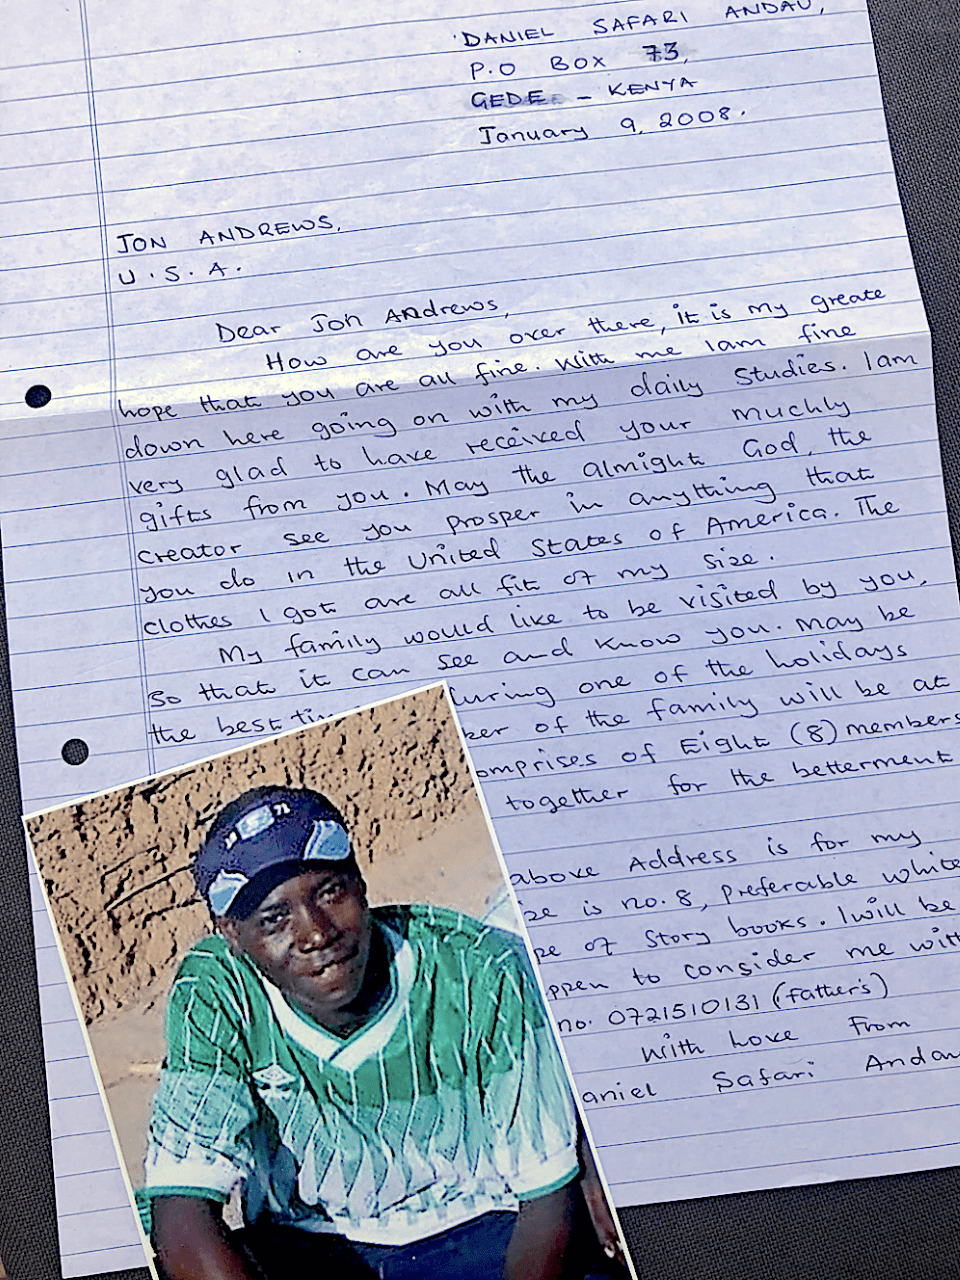 DANIEL SAFARI ANDAU,
P.O BOX 73,
GEDE - KENYA
January 9, 2008.
JON ANDREWS,
U.S.A.
Dear Jon Andrews,
How are you over there, it is my greate
hope that you are all fine. With me Iam fine
down here going on with my daily studies. Iam
very glad to have received your muchly
gifts from you. May the almight God, the
creator see you prosper in anything that
you do in the United States of America. The
clothes I got are all fit of my size.
My family would like to be visited by you,
so that it can see and know you. May be
the best during one of the holidays
ber of the family will be at
omprises of Eight (8) members
together for the betterment
above Address is for my
ze is no. 8, preferable white
pe of story books. Iwill be
ppen to consider me with
no. 0721510131 (father's)
With Love From
aniel Safari Andau
71